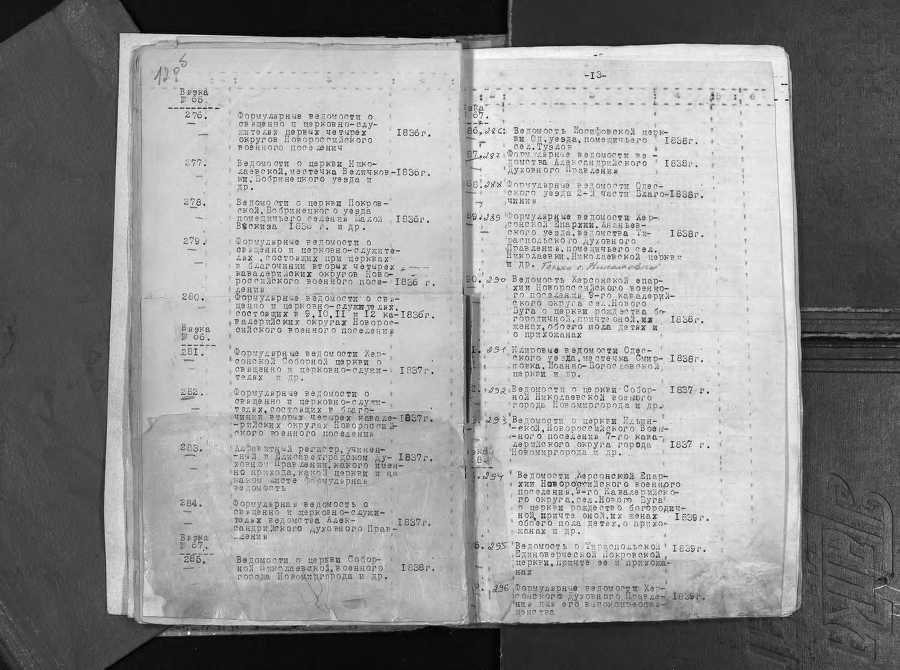 128
Вязка
№ 65.
276. Формулярные ведомости о
священно и церковно-слу-
жителях первых четырех 1836г.
округов Новороссийского
военного поселения
277. Ведомости о церкви Нико-
лаевской, местечка Величков- 1836г.
ки, Бобринецкого уезда и
др.
278. Ведомости о церкви Покров-
ской, Бобринецкого уезда
помещичьего селения Малой 1836г.
Вискиза 1836 г. и др.
279. Формулярные ведомости о
священно и церковно-служите-
лях, состоящих при церквах
в благочинии вторых четырех
кавалерийских округов Ново-
российского военного посе- 1836 г.
ления
280. Формулярные ведомости о свя-
щенно и церковно-служителях,
состоящих в 9,10,11 и 12 ка- 1836г.
валерийских округах Новорос-
сийского военного поселения
Вязка
№ 66.
281. Формулярные ведомости Хер-
сонской Соборной церкви о
священно и церковно-служи- 1837г.
телях и др.
282. Формулярные ведомости о
священно и церковно-служи-
телях, состоящих в благо-
чинии вторых четырех кавале- 1837г.
-рийских округах Новороссий-
ского военного поселения
283. Алфавитный регистр, учинен-
-ный в Елисаветградском ду- 1837г.
ховном Правлении, какого имен-
но прихода, какой церкви и на
каком листе формулярная
ведомость
284. Формулярная ведомость о
священно и церковно-служи-
телях ведомства Алек- 1837г.
сандрийского Духовного Прав-
ления
Вязка
№ 67.
285. Ведомости о церкви Собор-
ной Николаевской, военного 1838г.
города Новомиргорода и др.
-13-
67.
286. Ведомость Иосифовской церк-
ви Од. уезда, помещичьего 1838г.
сел. Тузлов
287 Формулярные ведомости ве-
домства Александрийского 1838г.
Духовного Правления
288 Формулярные ведомости Одес-
ского уезда 2-й части Благо- 1838г.
чиния
289 Формулярные ведомости Хер-
сонской Епархии, Ананьев-
ского уезда, ведомства Ти- 1838г.
распольского Духовного
Правления, помещичьего сел.
Николаевки, Николаевской церкви
и др. Только с. Николаевки
290 Ведомость Херсонской епар-
хии Новороссийского военно-
го поселения 9-го кавалерий-
ского округа сел. Нового
Буга о церкви рождества бо-
городичной, причте оной, их 1838г.
женах, обоего пола детях и
прихожанах
291 Клировые ведомости Одес-
ского уезда, местечка Смир- 1838г.
новка, Иоанно-Богословской
церкви и др.
292 Ведомости о церкви Собор- 1837 г.
ной Николаевской военного
города Новомиргорода и др.
293 Ведомости о церкви Ильин-
-ской, Новороссийского Воен-
-ного поселения 7-го кава-
лерийского округа города 1837 г.
Новомиргорода и др.
294 Ведомости Херсонской Епар-
хии Новороссийского военного
поселения, 9-го Кавалерийско-
го округа, сел. Нового Буга
о церкви рождество богородич-
ной, причте оной, их женах 1839г.
обоего пола детях, о прихо-
жанах и др.
295 Ведомость о Тираспольской 1839г.
Единоверческой Покровской
церкви, причте ее и прихожа-
нах
296 Формулярные ведомости Хер-
сонского Духовного Правле- 1839г.